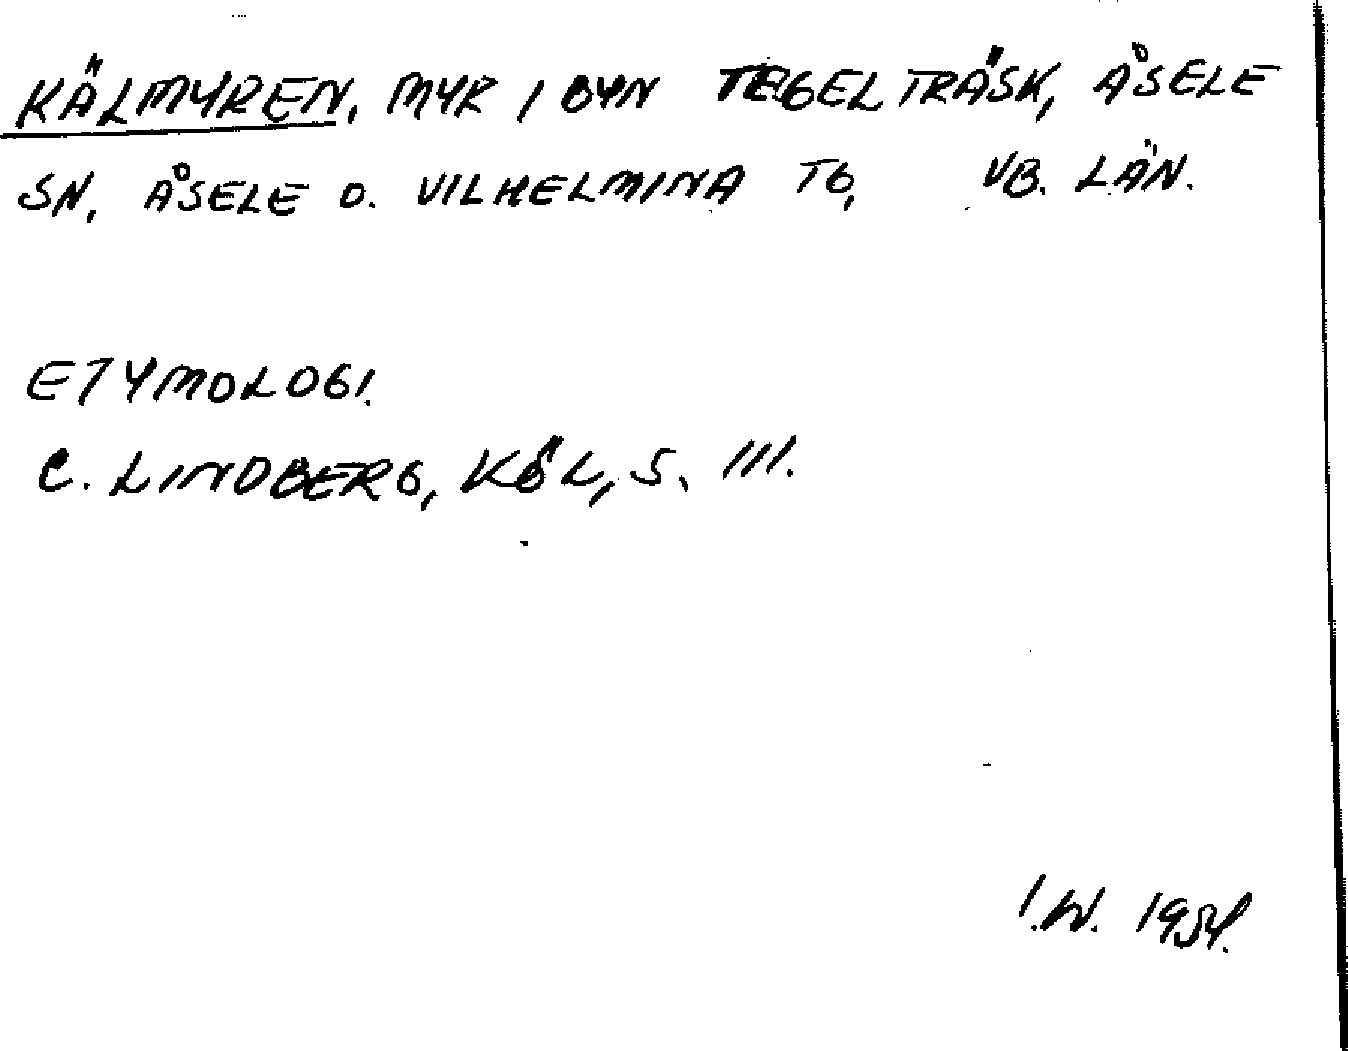 KÄLMYREN, MYR I BYN TEGELTRÄSK, ÅSELE
SN, ÅSELE O. VILHELMINA TG, VB. LÄN.
ETYMOLOGI.
C. LINDBERG, KÖL, S. 111.
I.W. 1954.